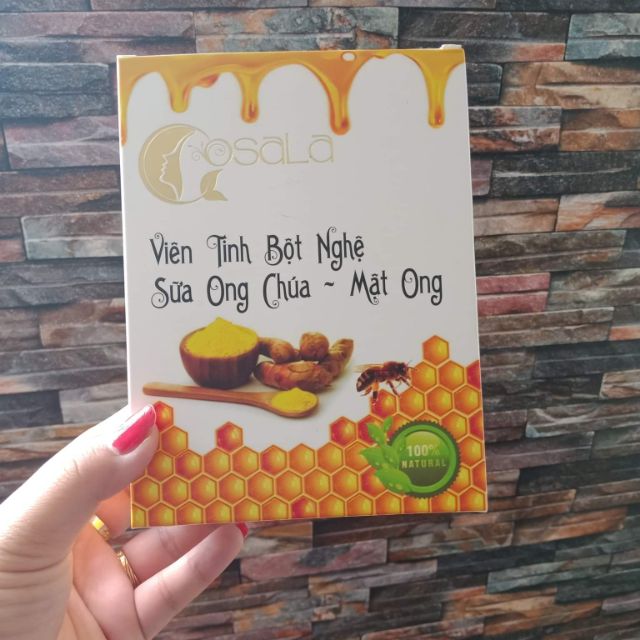 Cosala
Viên Tinh Bột Nghệ
Sữa Ong Chúa ~ Mật Ong
100%
NATURAL